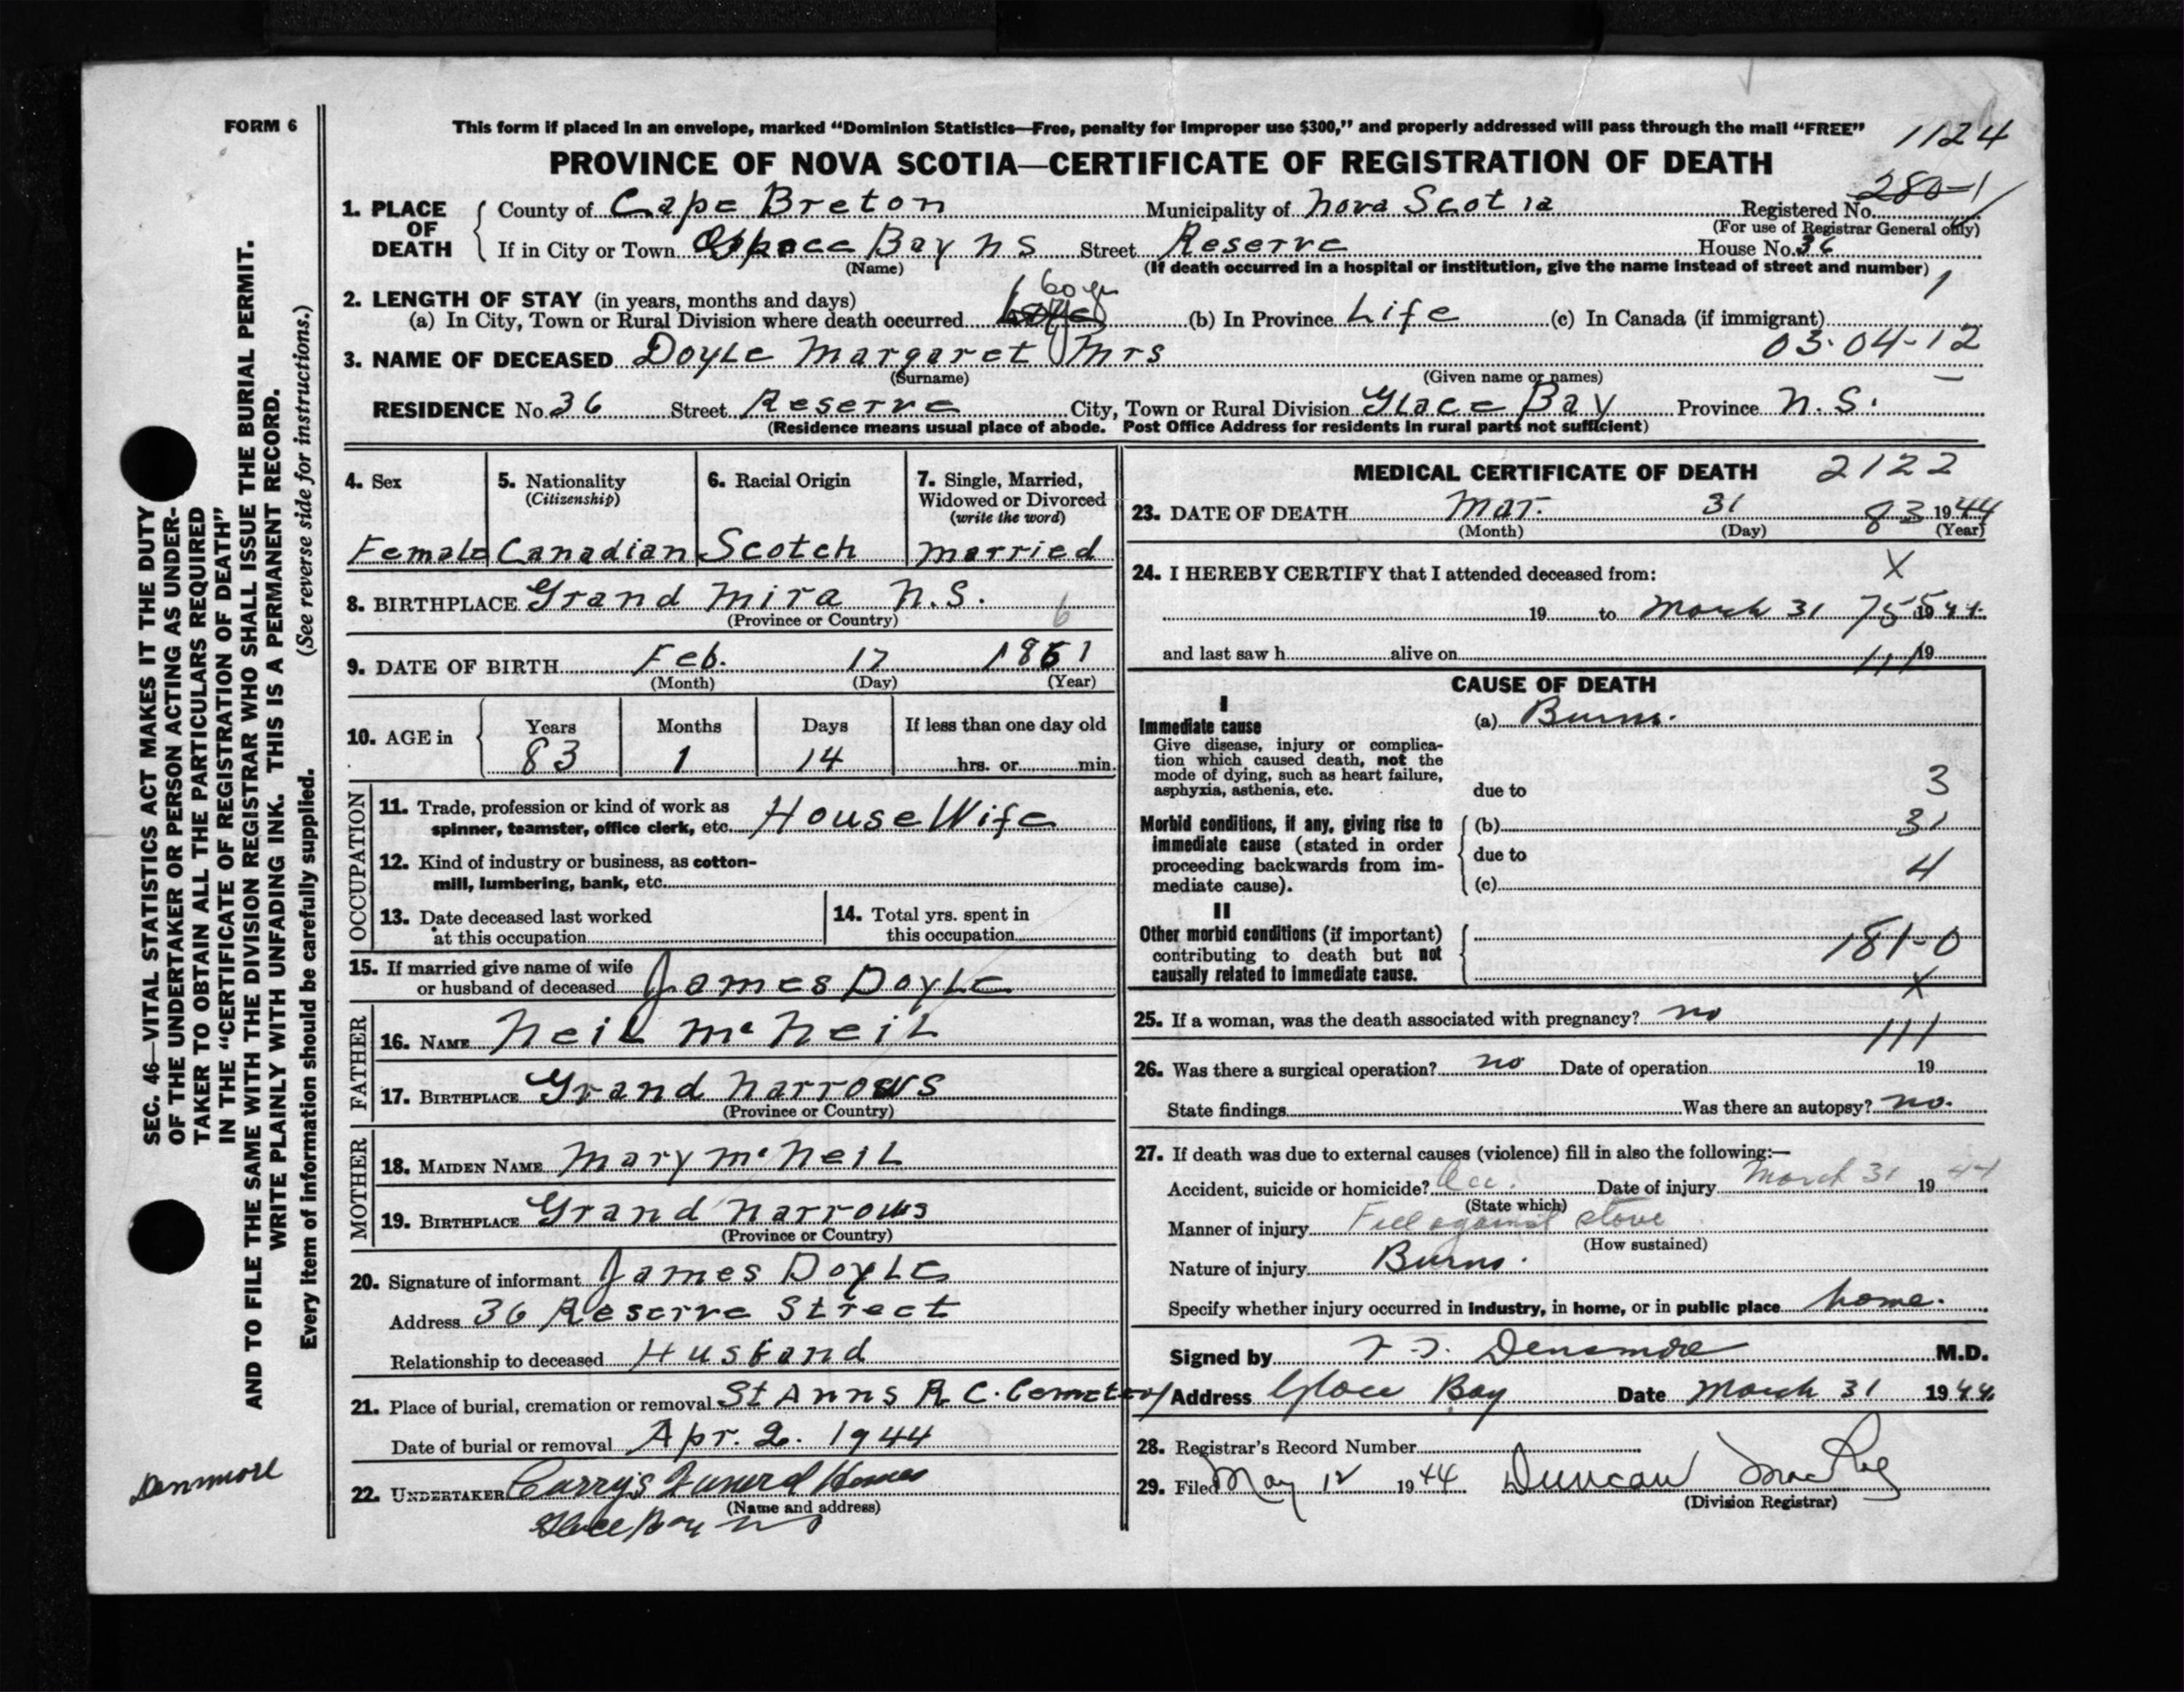 FORM 6
This form if placed in an envelope, marked “Dominion Statistics—Free, penalty for improper use $300,” and properly addressed will pass through the mail “FREE”
1124
PROVINCE OF NOVA SCOTIA—CERTIFICATE OF REGISTRATION OF DEATH
280-1
1. PLACE OF DEATH
County of Cape Breton Municipality of Nova Scotia Registered No.
(For use of Registrar General only)
If in City or Town Bay N S Street Reserve House No. 36
(Name) (If death occurred in a hospital or institution, give the name instead of street and number)
1
2. LENGTH OF STAY (in years, months and days) 60 yr
(a) In City, Town or Rural Division where death occurred (b) In Province Life (c) In Canada (if immigrant)
03-04-12
3. NAME OF DECEASED Doyle Margaret Mrs
(Surname) (Given name or names)
RESIDENCE No. 36 Street Reserve City, Town or Rural Division Glace Bay Province N.S.
(Residence means usual place of abode. Post Office Address for residents in rural parts not sufficient)
4. Sex 5. Nationality (Citizenship) 6. Racial Origin 7. Single, Married, Widowed or Divorced (write the word)
Female Canadian Scotch Married
8. BIRTHPLACE Grand Mira N.S.
(Province or Country)
6
9. DATE OF BIRTH Feb. 17 1861
(Month) (Day) (Year)
10. AGE in Years Months Days If less than one day old
83 1 14 hrs. or min.
OCCUPATION
11. Trade, profession or kind of work as
spinner, teamster, office clerk, etc. House Wife
12. Kind of industry or business, as cotton-
mill, lumbering, bank, etc.
13. Date deceased last worked
at this occupation
14. Total yrs. spent in
this occupation
15. If married give name of wife
or husband of deceased James Doyle
FATHER
16. NAME Neil McNeil
17. BIRTHPLACE Grand Narrows
(Province or Country)
MOTHER
18. MAIDEN NAME Mary McNeil
19. BIRTHPLACE Grand Narrows
(Province or Country)
20. Signature of informant James Doyle
Address 36 Reserve Street
Relationship to deceased Husband
21. Place of burial, cremation or removal St Anns R C. Cemetery
Date of burial or removal Apr. 2. 1944
22. UNDERTAKER Curry's Funeral Homes
(Name and address)
Glace Bay N S
MEDICAL CERTIFICATE OF DEATH 2122
23. DATE OF DEATH Mar. 31 83 1944
(Month) (Day) (Year)
X
24. I HEREBY CERTIFY that I attended deceased from:
19 to March 31 755 1944
and last saw h alive on 19
CAUSE OF DEATH
I
Immediate cause
Give disease, injury or complica-
tion which caused death, not the
mode of dying, such as heart failure,
asphyxia, asthenia, etc.
(a) Burns.
due to 3
Morbid conditions, if any, giving rise to
immediate cause (stated in order
proceeding backwards from im-
mediate cause).
(b) 31
due to
(c) 4
II
Other morbid conditions (if important)
contributing to death but not
causally related to immediate cause.
181-0
X
25. If a woman, was the death associated with pregnancy? no
111
26. Was there a surgical operation? no Date of operation 19
State findings Was there an autopsy? no.
27. If death was due to external causes (violence) fill in also the following:—
Accident, suicide or homicide? Acc. Date of injury March 31 1944
(State which)
Manner of injury Fell against stove
(How sustained)
Nature of injury Burns.
Specify whether injury occurred in industry, in home, or in public place home.
Signed by Densmore M.D.
Address Glace Bay Date March 31 1944
28. Registrar's Record Number
29. Filed May 12 1944 Duncan MacRae
(Division Registrar)
SEC. 46—VITAL STATISTICS ACT MAKES IT THE DUTY
OF THE UNDERTAKER OR PERSON ACTING AS UNDER-
TAKER TO OBTAIN ALL THE PARTICULARS REQUIRED
IN THE “CERTIFICATE OF REGISTRATION OF DEATH”
AND TO FILE THE SAME WITH THE DIVISION REGISTRAR WHO SHALL ISSUE THE BURIAL PERMIT.
WRITE PLAINLY WITH UNFADING INK. THIS IS A PERMANENT RECORD.
Every item of information should be carefully supplied. (See reverse side for instructions.)
Densmore